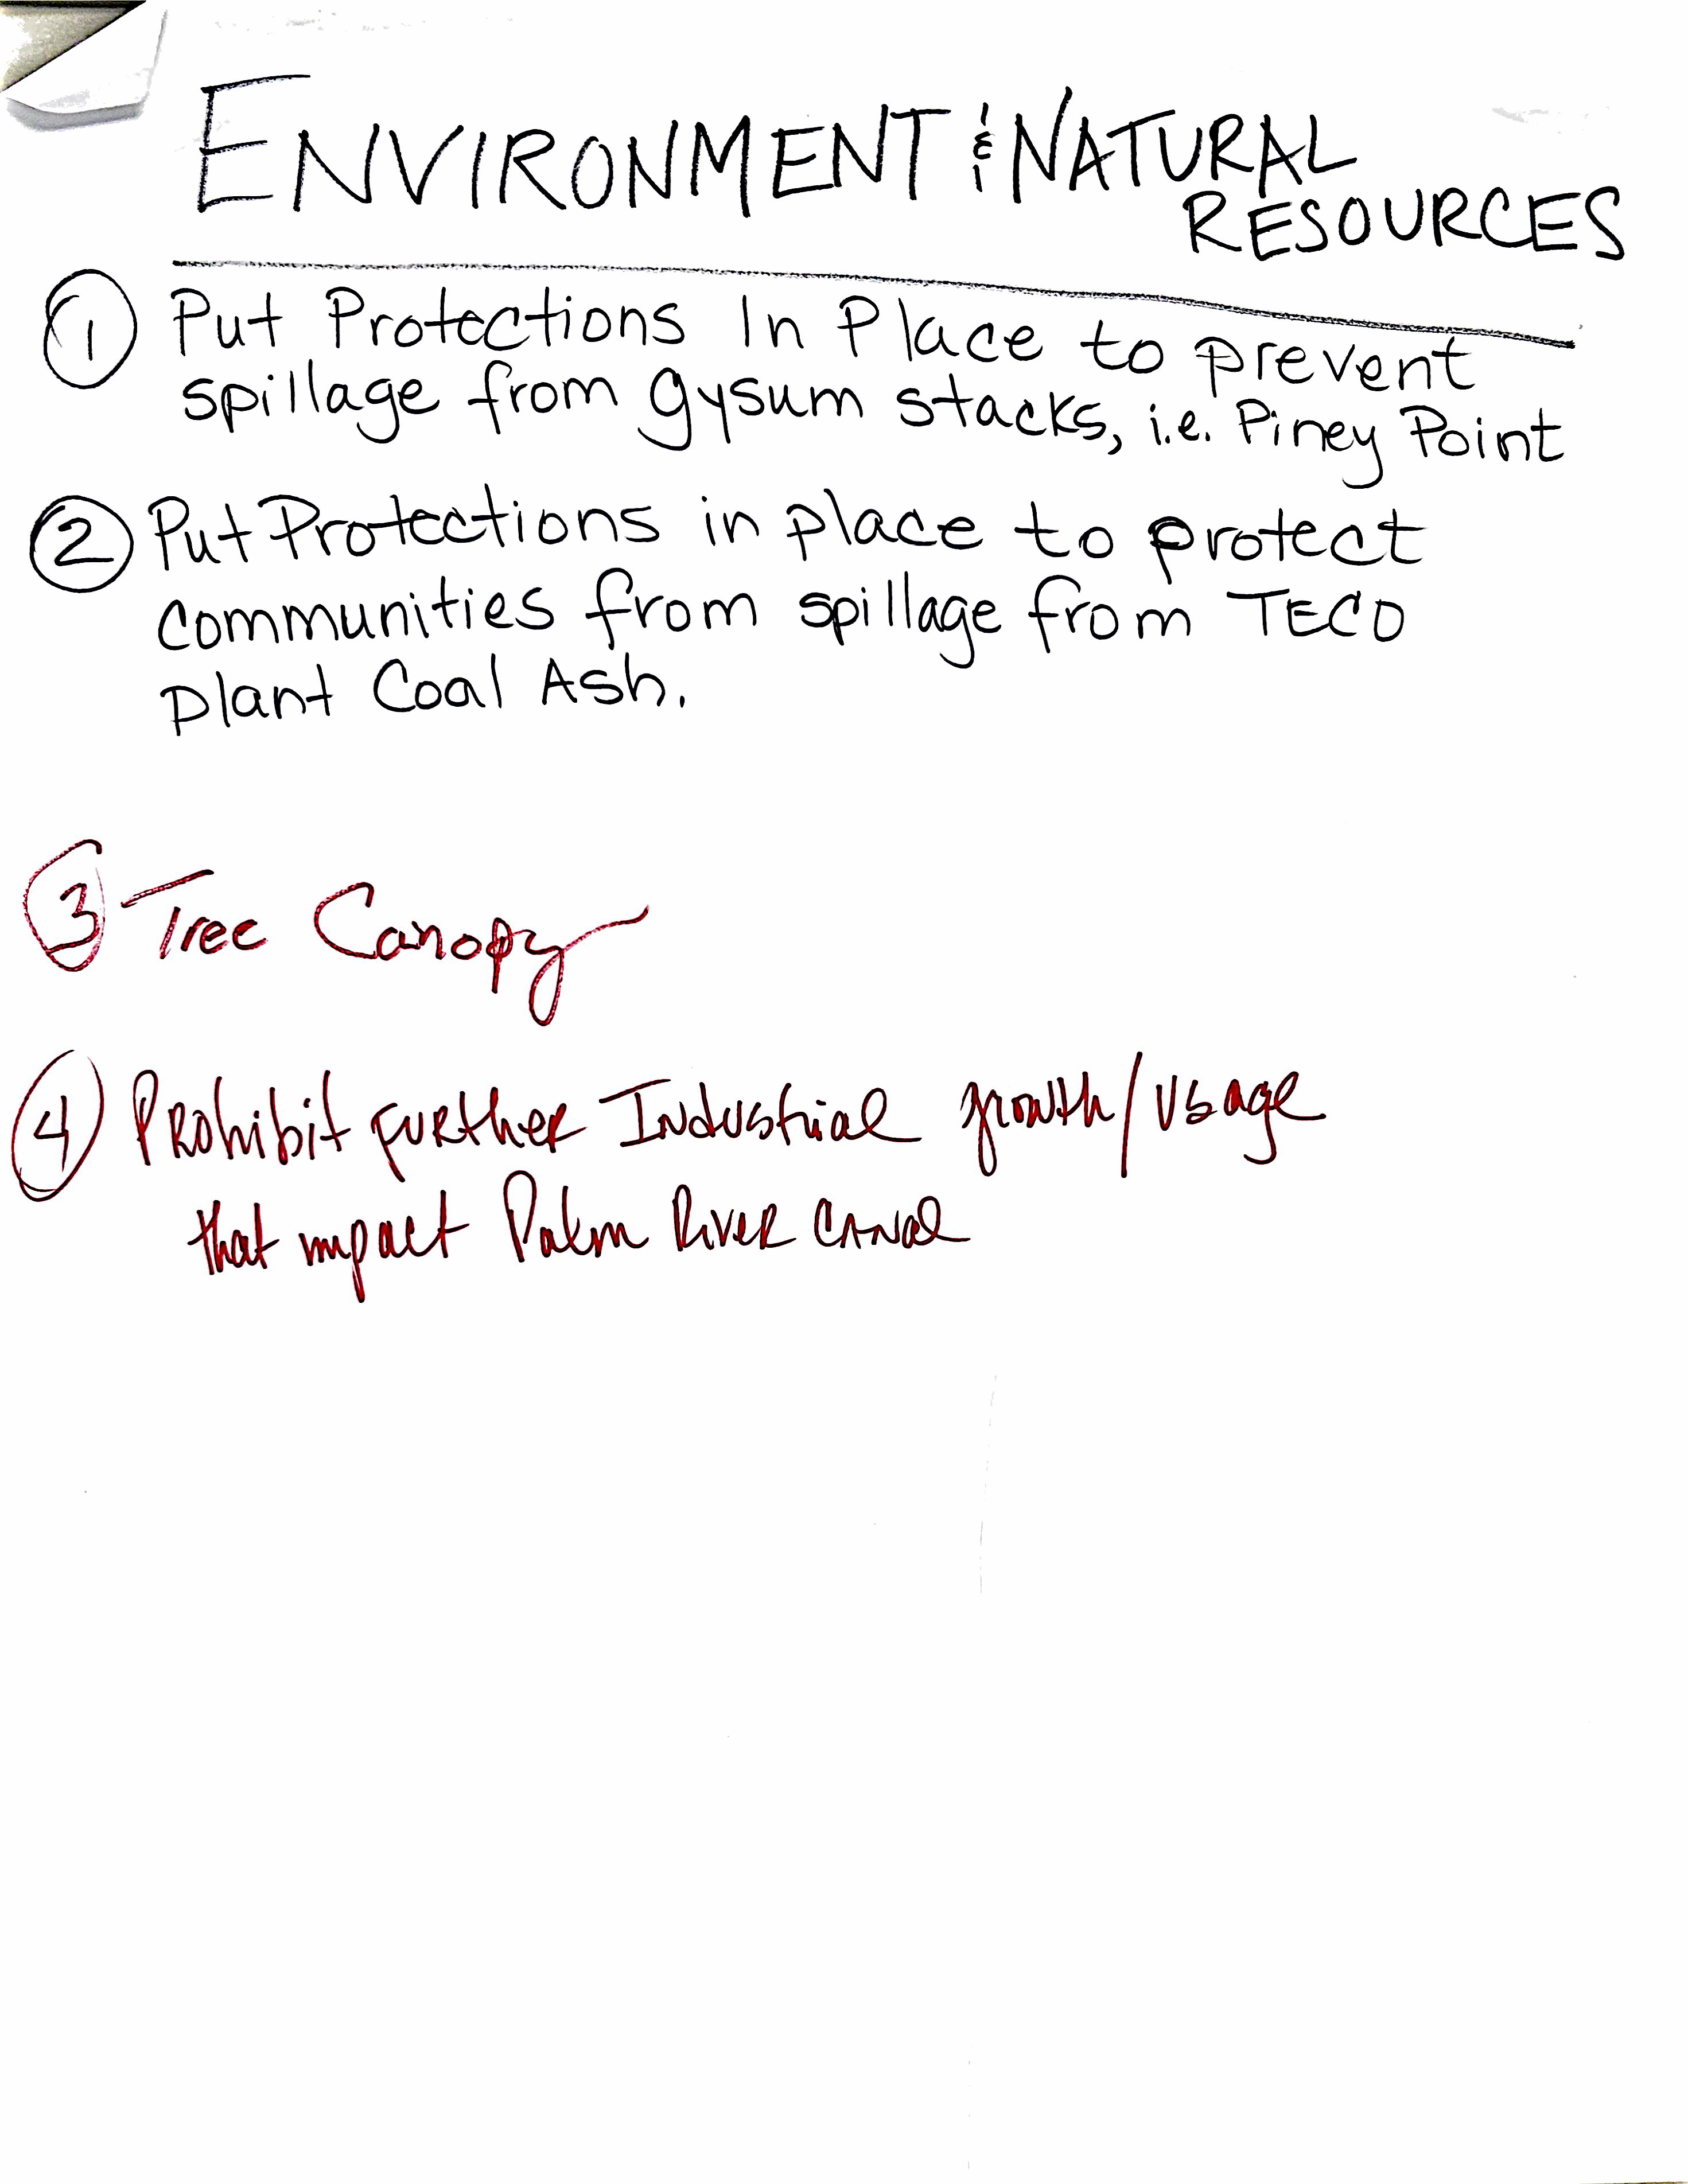 ENVIRONMENT & NATURAL
RESOURCES
1 Put Protections In Place to prevent
spillage from gysum stacks, i.e. Piney Point
2 Put Protections in place to protect
communities from spillage from TECO
plant Coal Ash.
3 Tree Canopy
4 PRohibit FuRtheR Industrial growth/Usage
that impact Palm RiveR CANal